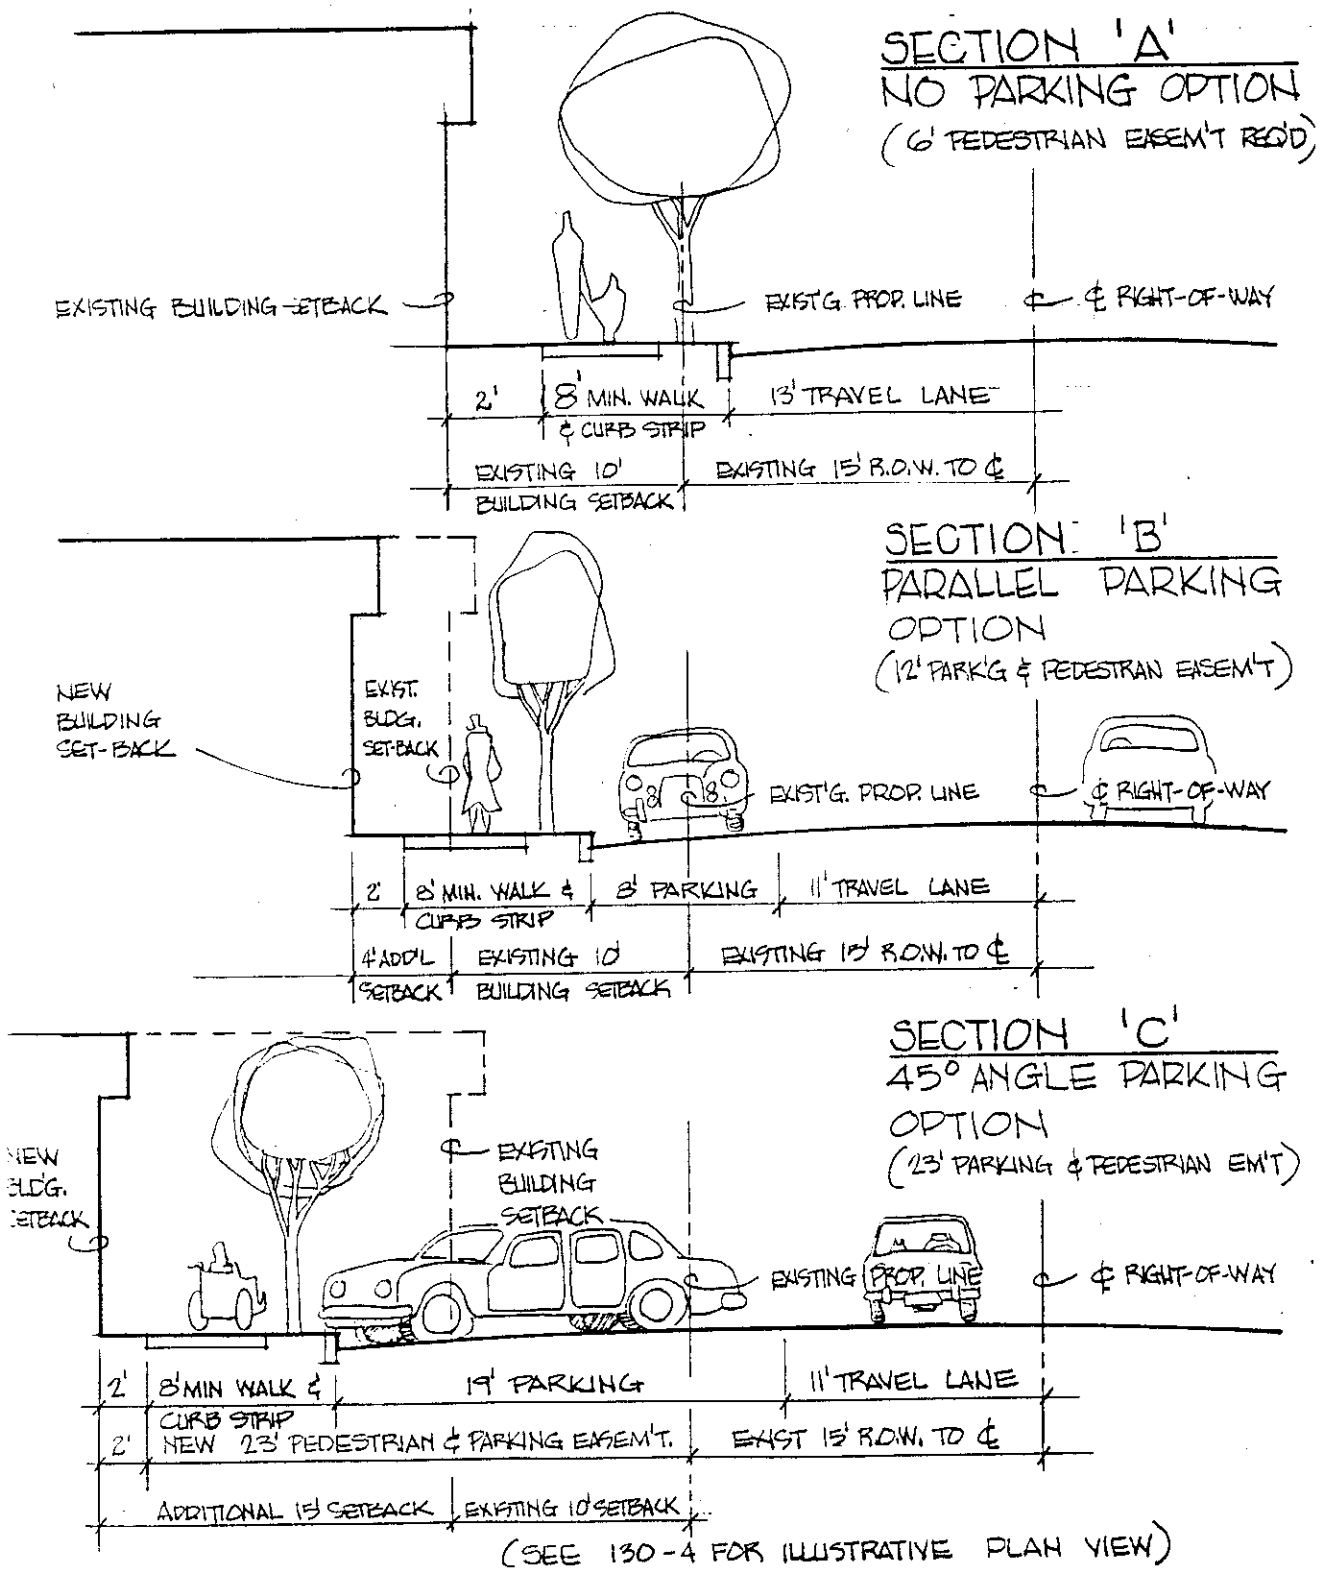 SECTION 'A'
NO PARKING OPTION
(6' PEDESTRIAN EASEM'T REQ'D)
EXISTING BUILDING SETBACK
EXIST'G. PROP. LINE
℄ RIGHT-OF-WAY
2'
8' MIN. WALK
& CURB STRIP
13' TRAVEL LANE
EXISTING 10'
BUILDING SETBACK
EXISTING 15' R.O.W. TO ℄
SECTION 'B'
PARALLEL PARKING
OPTION
(12' PARK'G & PEDESTRAN EASEM'T)
NEW
BUILDING
SET-BACK
EXIST.
BLDG.
SET-BACK
8 8
EXIST'G. PROP. LINE
℄ RIGHT-OF-WAY
2'
8' MIN. WALK &
CURB STRIP
8' PARKING
11' TRAVEL LANE
4' ADD'L
SETBACK
EXISTING 10'
BUILDING SETBACK
EXISTING 15' R.O.W. TO ℄
SECTION 'C'
45° ANGLE PARKING
OPTION
(23' PARKING & PEDESTRIAN EM'T)
NEW
BLD'G.
SETBACK
EXISTING
BUILDING
SETBACK
EXISTING PROP. LINE
℄ RIGHT-OF-WAY
2'
8' MIN WALK &
CURB STRIP
19' PARKING
11' TRAVEL LANE
2'
NEW 23' PEDESTRIAN & PARKING EASEM'T.
EXIST 15' R.O.W. TO ℄
ADDITIONAL 15' SETBACK
EXISTING 10' SETBACK
(SEE 130-4 FOR ILLUSTRATIVE PLAN VIEW)